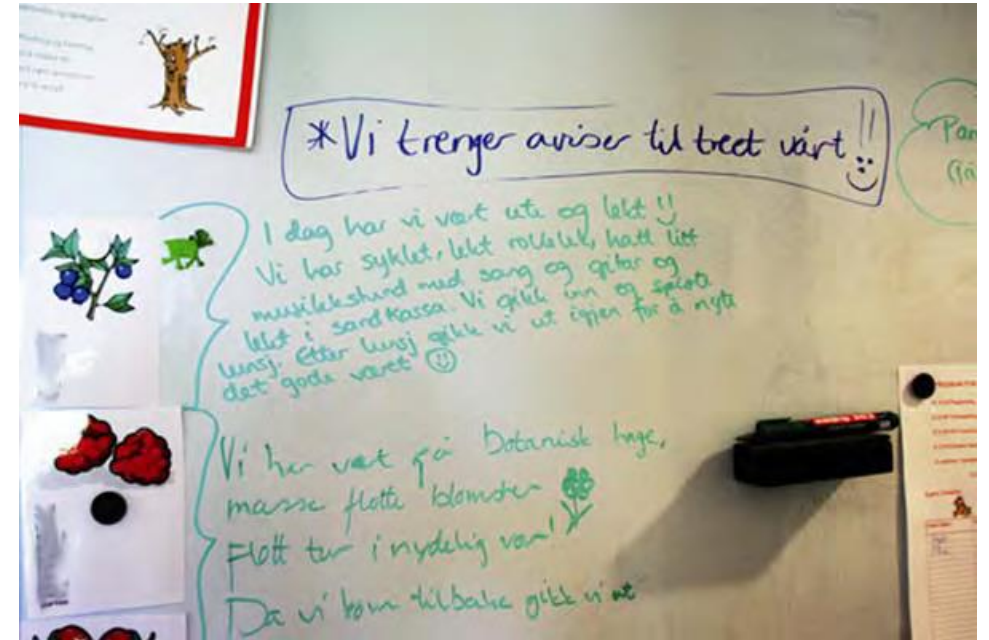 *Vi trenger aviser til treet vårt!!
Par
(fri
I dag har vi vært ute og lekt!!
Vi har syklet, lekt rollelek, hatt litt
musikkstund med sang og gitar og
lekt i sandkassa. Vi gikk inn og spiste
lunsj. Etter lunsj gikk vi ut igjen for å nyte
det gode været
Vi har vært på botanisk hage,
masse flotte blomster
Flott tur i nydelig vær!
Da vi kom tilbake gikk vi ut